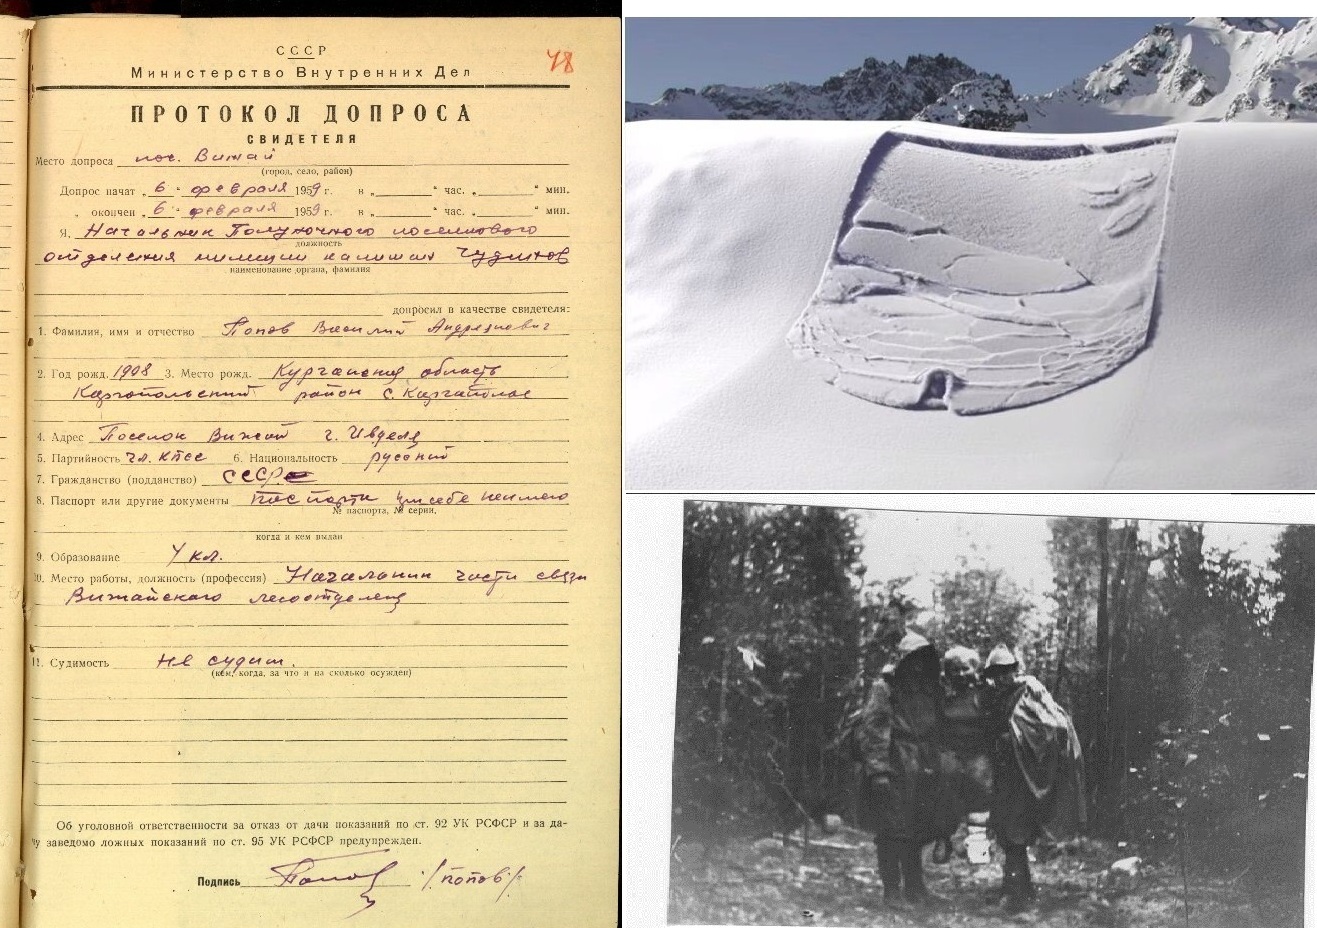 СССР
48
Министерство Внутренних Дел
ПРОТОКОЛ ДОПРОСА
СВИДЕТЕЛЯ
Место допроса пос. Вижай
(город, село, район)
Допрос начат „ 6 “ февраля 1959 г. в „ “ час. „ “ мин.
„ окончен „ 6 “ февраля 1959 г. в „ “ час. „ “ мин.
Я, Начальник Полуночного поселкового
должность
отделения милиции капитан Чудинов
наименование органа, фамилия
допросил в качестве свидетеля:
1. Фамилия, имя и отчество Попов Василий Андреянович
2. Год рожд. 1908 3. Место рожд. Курганская область
Каргопольский район с. Каргаполье
4. Адрес Поселок Вижай г. Ивделя
5. Партийность чл. КПСС 6. Национальность русский
7. Гражданство (подданство) СССР
8. Паспорт или другие документы паспорта при себе не имею
№ паспорта, № серии,
когда и кем выдан
9. Образование 4 кл.
10. Место работы, должность (профессия) Начальник части связи
Вижайского лесоотделения
11. Судимость Не судим.
(кем, когда, за что и на сколько осужден)
Об уголовной ответственности за отказ от дачи показаний по ст. 92 УК РСФСР и за да-
чу заведомо ложных показаний по ст. 95 УК РСФСР предупрежден.
Подпись Попов /попов/